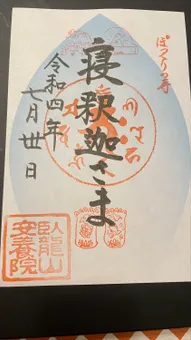 ぽっくり寺
寝釈迦さま
令和四年
七月丗日
臥龍山
安養院